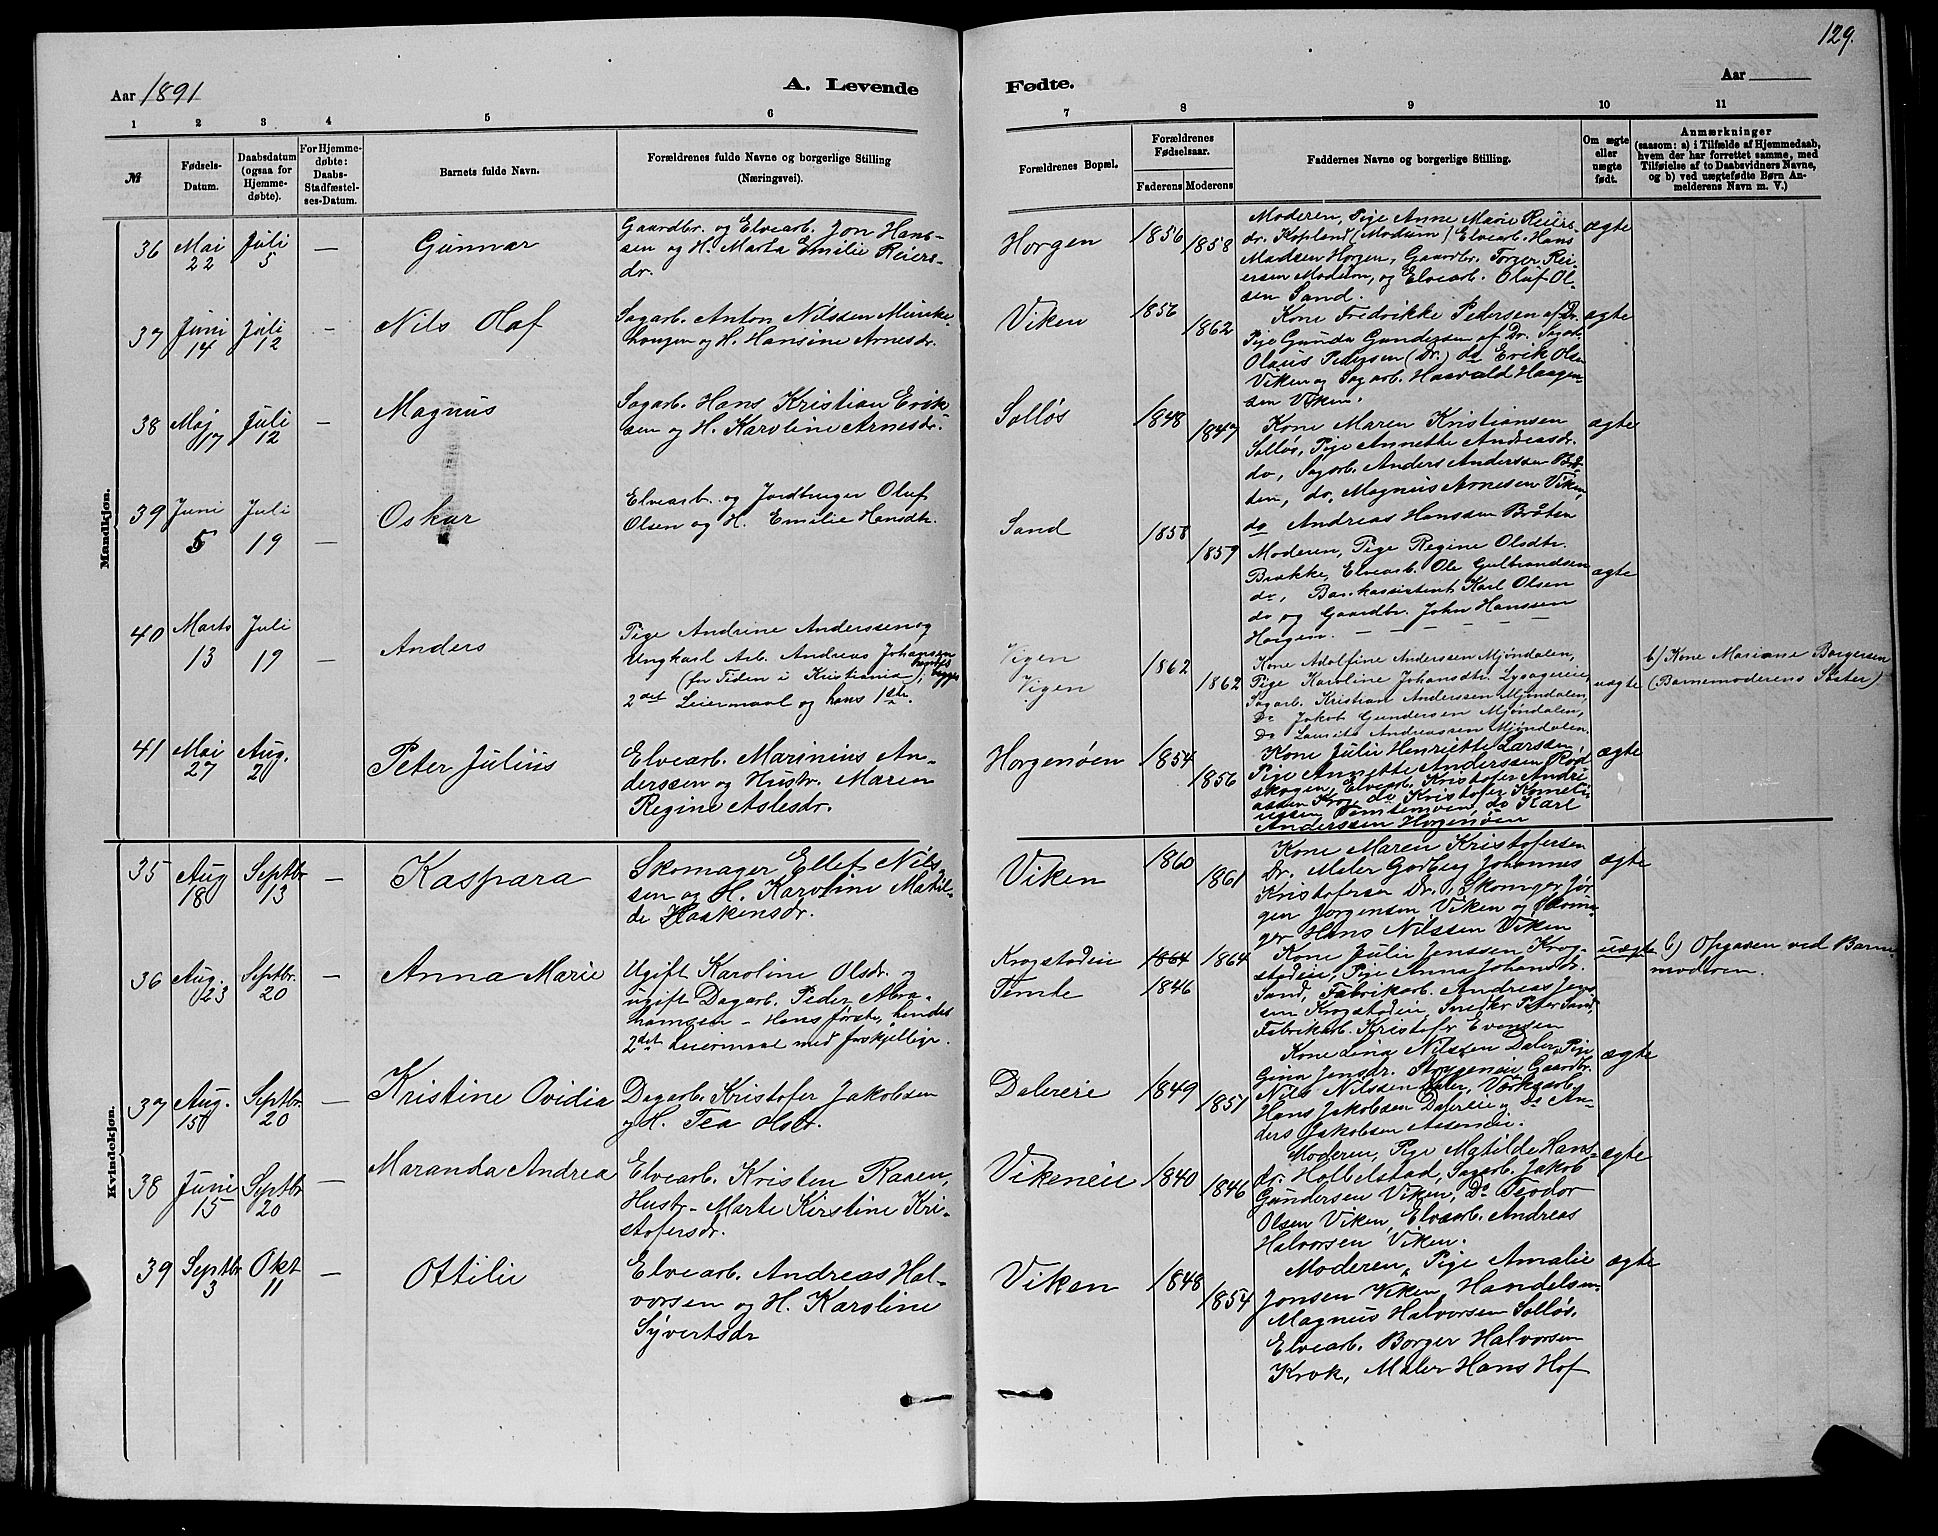 129.
Aar 1891
A. Levende
Fødte.
Aar
1 2 3 4 5 6
7 8 9 10 11
№
Fødsels-
Datum.
Daabsdatum
(ogsaa for
Hjemme-
døbte).
For Hjemme-
døbte:
Daabs-
Stadfæstel-
ses-Datum.
Barnets fulde Navn.
Forældrenes fulde Navne og borgerlige Stilling
(Næringsvei).
Forældrenes Bopæl.
Forældrenes
Fødselsaar.
Faderens Moderens
Faddernes Navne og borgerlige Stilling.
Om ægte
eller
uægte
født.
Anmærkninger
(saasom: a) i Tilfælde af Hjemmedaab,
hvem der har forrettet samme, med
Tilføielse af to Daabsvidners Navne,
og b) ved uægtefødte Børn An-
melderens Navn m. V.)
Mandkjøn.
36 Mai 22 Juli 5 —
Gunnar
Gaardbr. og Elvearb. Jon Hans-
sen og H. Marta Emilie Reiers-
dr.
Horgen
1856
1858
Moderen, Pige Anne Marie Reiers-
dr. Kopland (Modum) Elvearb. Hans
Madsen Horgen, Gaardbr. Torger Rei-
ersen Modum, og Elvearb. Oluf Ol-
sen Sand.
ægte
37 Juni 14 Juli 12 —
Nils Olaf
Sagarb. Anton Nilssen Muncke-
haugen og H. Hansine Arnesdr.
Viken
1856
1862
Kone Fredrikke Pedersen af Dr.
Pige Gunda Gundersen af Dr. Sagarb.
Olaus Pedersen (Dr.) do Erik Olsen
Viken og Sagarb. Haavald Haagen-
sen Viken.
ægte
38 Maj 17 Juli 12 —
Magnus
Sagarb. Hans Kristian Erik-
sen og H. Karoline Arnesdr.
Solløs
1848
1847
Kone Maren Kristiansen
Solløs, Pige Annette Andreasdr.
do, Sagarb. Anders Anderssen Brå-
ten, do, Magnus Arnesen Viken,
do Andreas Hanssen Bråten
ægte
39 Juni 5 Juli 19 —
Oskar
Elvearb. og Jordbruger Oluf
Olsen og H. Emilie Hansdtr.
Sand
1858
1859
Moderen, Pige Regine Olsdtr.
Brække, Elvearb. Ole Gulbrandsen
do, Bankassistent Karl Olsen
do og Gaardbr. John Hanssen
Horgen. — — — — —
ægte
40 Marts 13 Juli 19 —
Anders
Pige Andrine Anderssen og
Ungkarl Arb. Andreas Johansen
(for Tiden i Kristiania), hendes begges
2det Leiermaal og hans 1ste.
Vigen
Vigen
1862
1862
Kone Adolfine Anderssen Mjøndalen,
Pige Karoline Johansdtr. Lysagereie,
Sagarb. Kristian Anderssen Mjøndalen,
Do Jakob Gundersen Mjøndalen,
Do Lauritz Andreassen Mjøndalen.
uægte
b/ Kone Mariane Borgersen
(Barnemoderens Søster)
41 Mai 27 Aug. 2
Peter Julius
Elvearb. Marinius An-
derssen og Hustr. Maren
Regine Aslesdr.
Horgenøen
1854
1856
Kone Julie Henriette Larssen,
Pige Annette Anderssen Rød
skogen, Elvearb. Kristofer Andre
assen Krog, do Kristofer Korneli
ussen Temtemoen, do Karl
Anderssen Horgenøen
ægte
Kvindekjøn.
35 Aug 18 Septbr 13 —
Kaspara
Skomager Ellef Nils-
sen og H. Karoline Matil-
de Haakensdr.
Viken
1860
1861
Kone Maren Kristofersen
Dr. Maler Godberg Johannes
Kristofersen Dr., Skomager Jør
gen Jørgensen Viken og Skoma-
ger Hans Nilssen Viken
ægte
36 Aug. 23 Septbr. 20 —
Anna Marie
Ugift Karoline Olsdr. og
ugift Dagarb. Peder Abra-
hamsen – Hans første, hendes
2det Leiermaal med forskjellige.
Krogstadeie
Temte
1864 1864
1846
Kone Julie Jenssen Krog-
stadeie, Pige Anna Johansdr.
Sand, Fabrikarb. Andreas Jens
sen Krogstadeie, Snedker Peter Sand,
Fabrikarb. Kristofer Evensen
uægte
b) Opgaven ved Barne-
moderen.
37 Aug. 15 Septbr. 20 —
Kristine Ovidia
Dagarb. Kristofer Jakobsen
og H. Tea Olsdr.
Dalereie
1849
1851
Kone Lina Nilssen Daler, Pige
Gina Jensdr. Gaardbr.
Nils Nilssen Daler, Værkarb.
Hans Jakobsen Dalereie og Do An-
ders Jakobsen Aaseneie.
ægte
38 Juni 15 Septbr 20 —
Maranda Andrea
Elvearb. Kristen Raaen,
Hustr – Marte Kirstine Kri-
stofersdr.
Vikeneie
1840
1846
Moderen, Pige Matilde Hans-
dr. Hobbelstad, Sagarb. Jakob
Gundersen Viken, Do Teodor
Olsen Viken, Elvearb. Andreas
Halvorsen Viken.
ægte
39 Septbr 3 Okt 11 —
Ottilie
Elvearb. Andreas Hal-
vorsen og H. Karoline
Syvertsdr
Viken
1848
1854
Moderen, Pige Amalie
Jonsen Viken, Handelsm.
Magnus Halvorsen Solløs,
Elvearb. Borger Halvorsen
Krok, Maler Hans Hof
ægte